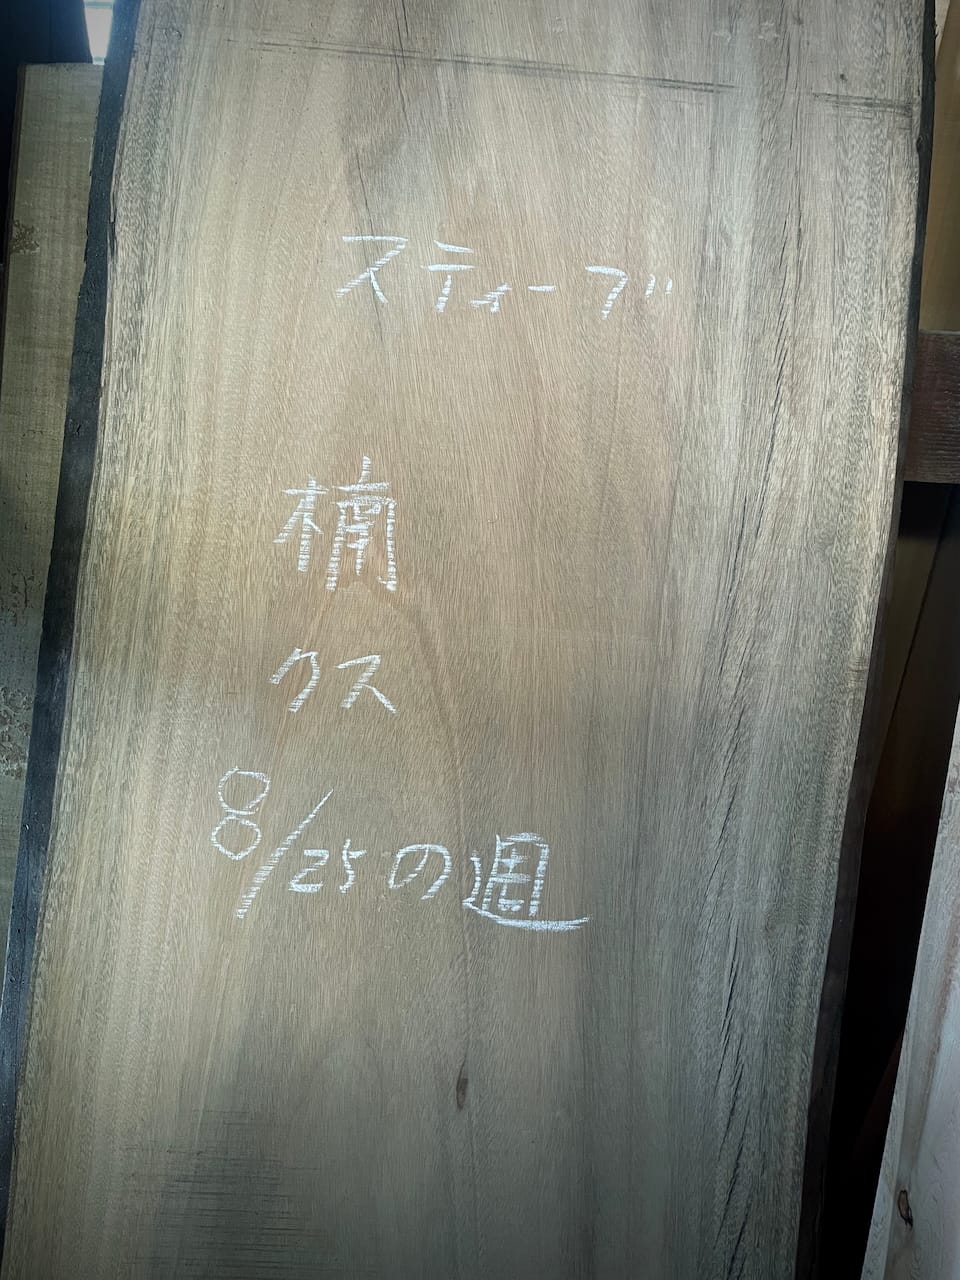 スティーブ
楠
クス
8/25の週